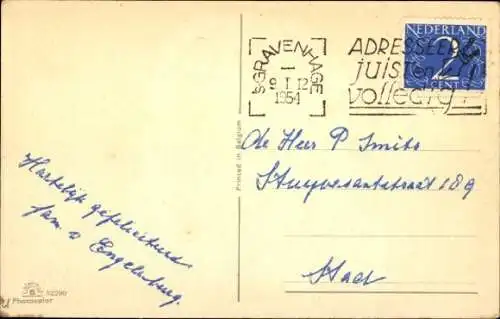 NEDERLAND
2
CENT
'SGRAVENHAGE
9 I 12
1954
ADRESSEER
juist en
volledig
Printed in Belgium
de Heer P Smits
Stuyvesantstraat 189
Stad
Hartelijk gefeliciteerd
fam. v Engelenburg.